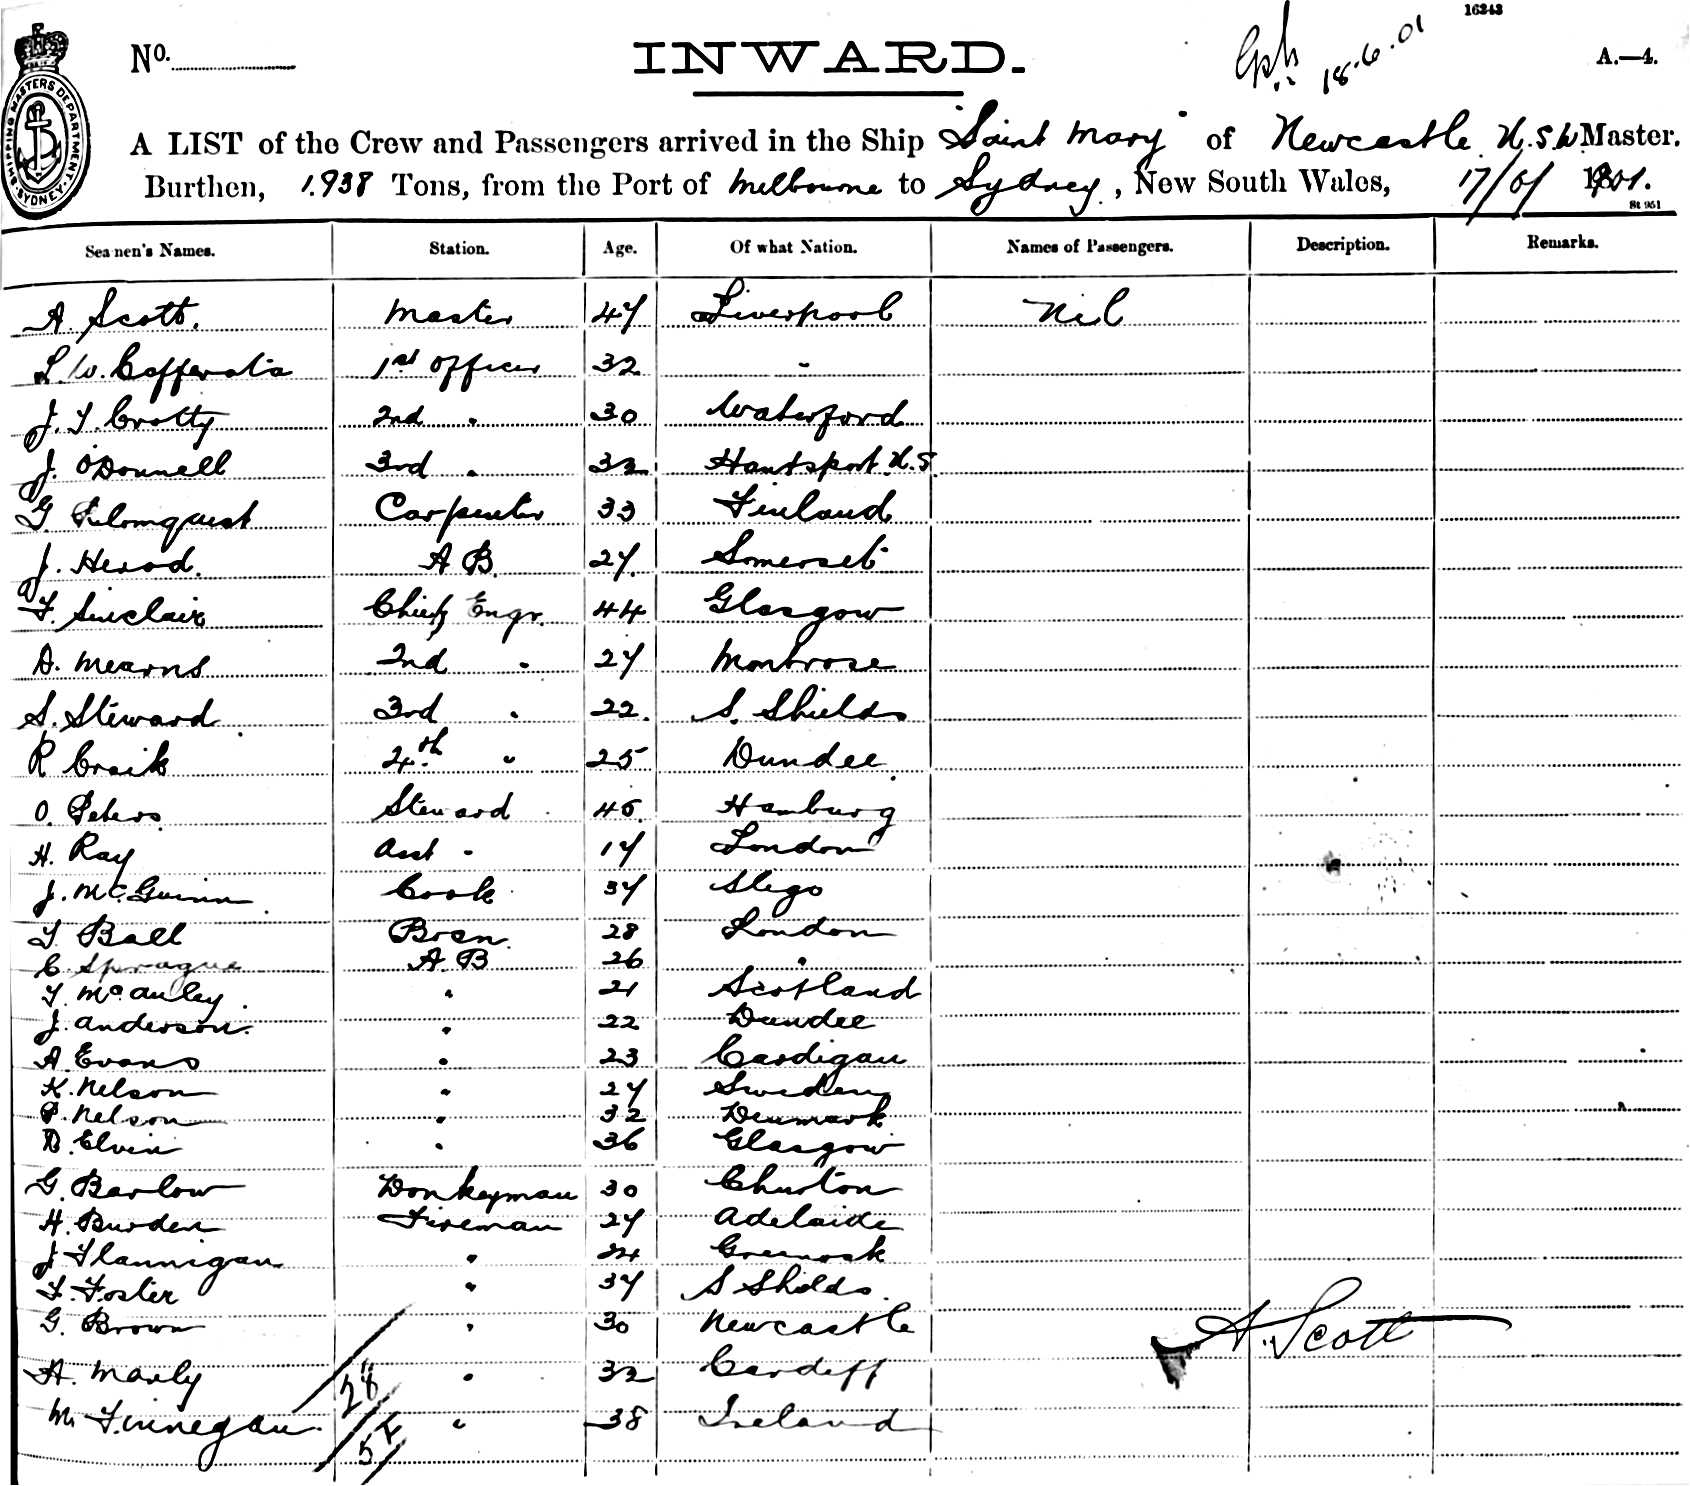 16343
No.
INWARD.
18.6.01
A.—4.
SHIPPING MASTERS DEPARTMENT. SYDNEY.
A LIST of the Crew and Passengers arrived in the Ship "Saint Mary" of Newcastle N.S.W Master.
Burthen, 1.938 Tons, from the Port of Melbourne to Sydney, New South Wales, 17/6/ 1901.
St 951
Seamen's Names. Station. Age. Of what Nation. Names of Passengers. Description. Remarks.
A. Scott. Master 47 Liverpool Nil
L. W. Cafferata 1st Officer 32 "
J. T. Crotty 2nd " 30 Waterford
J. O'Donnell 3rd " 32 Hantsport N.S
G Carpenter 33 Finland
J. Herod. A B. 27 Somerset
F. Sinclair Chief Engr. 44 Glasgow
A. Mearns 2nd " 27 Montrose
S. Steward 3rd " 22. S. Shields
R Craik 4th " 25 Dundee
O. Peters Steward 45 Hamburg
H. Ray Asst " 17 London
J. McGuinn Cook 37 Sligo
T Ball Bosn. 28 London
C. Sprague A. B 26 "
T. McAuley " 21 Scotland
J. Anderson. " 22 Dundee
A. Evans " 23 Cardigan
K. Nelson " 27 Sweden
P. Nelson " 32 Denmark
D. Elvin " 36 Glasgow
G. Barlow Donkeyman 30 Churton
H. Burden Fireman 27 Adelaide
J Flannigan " 24 Greenock
F. Foster " 37 S Shields.
G. Brown " 30 Newcastle
A. Scott
H. Manly " 32 Cardiff
28
M. Finnegan " 38 Ireland